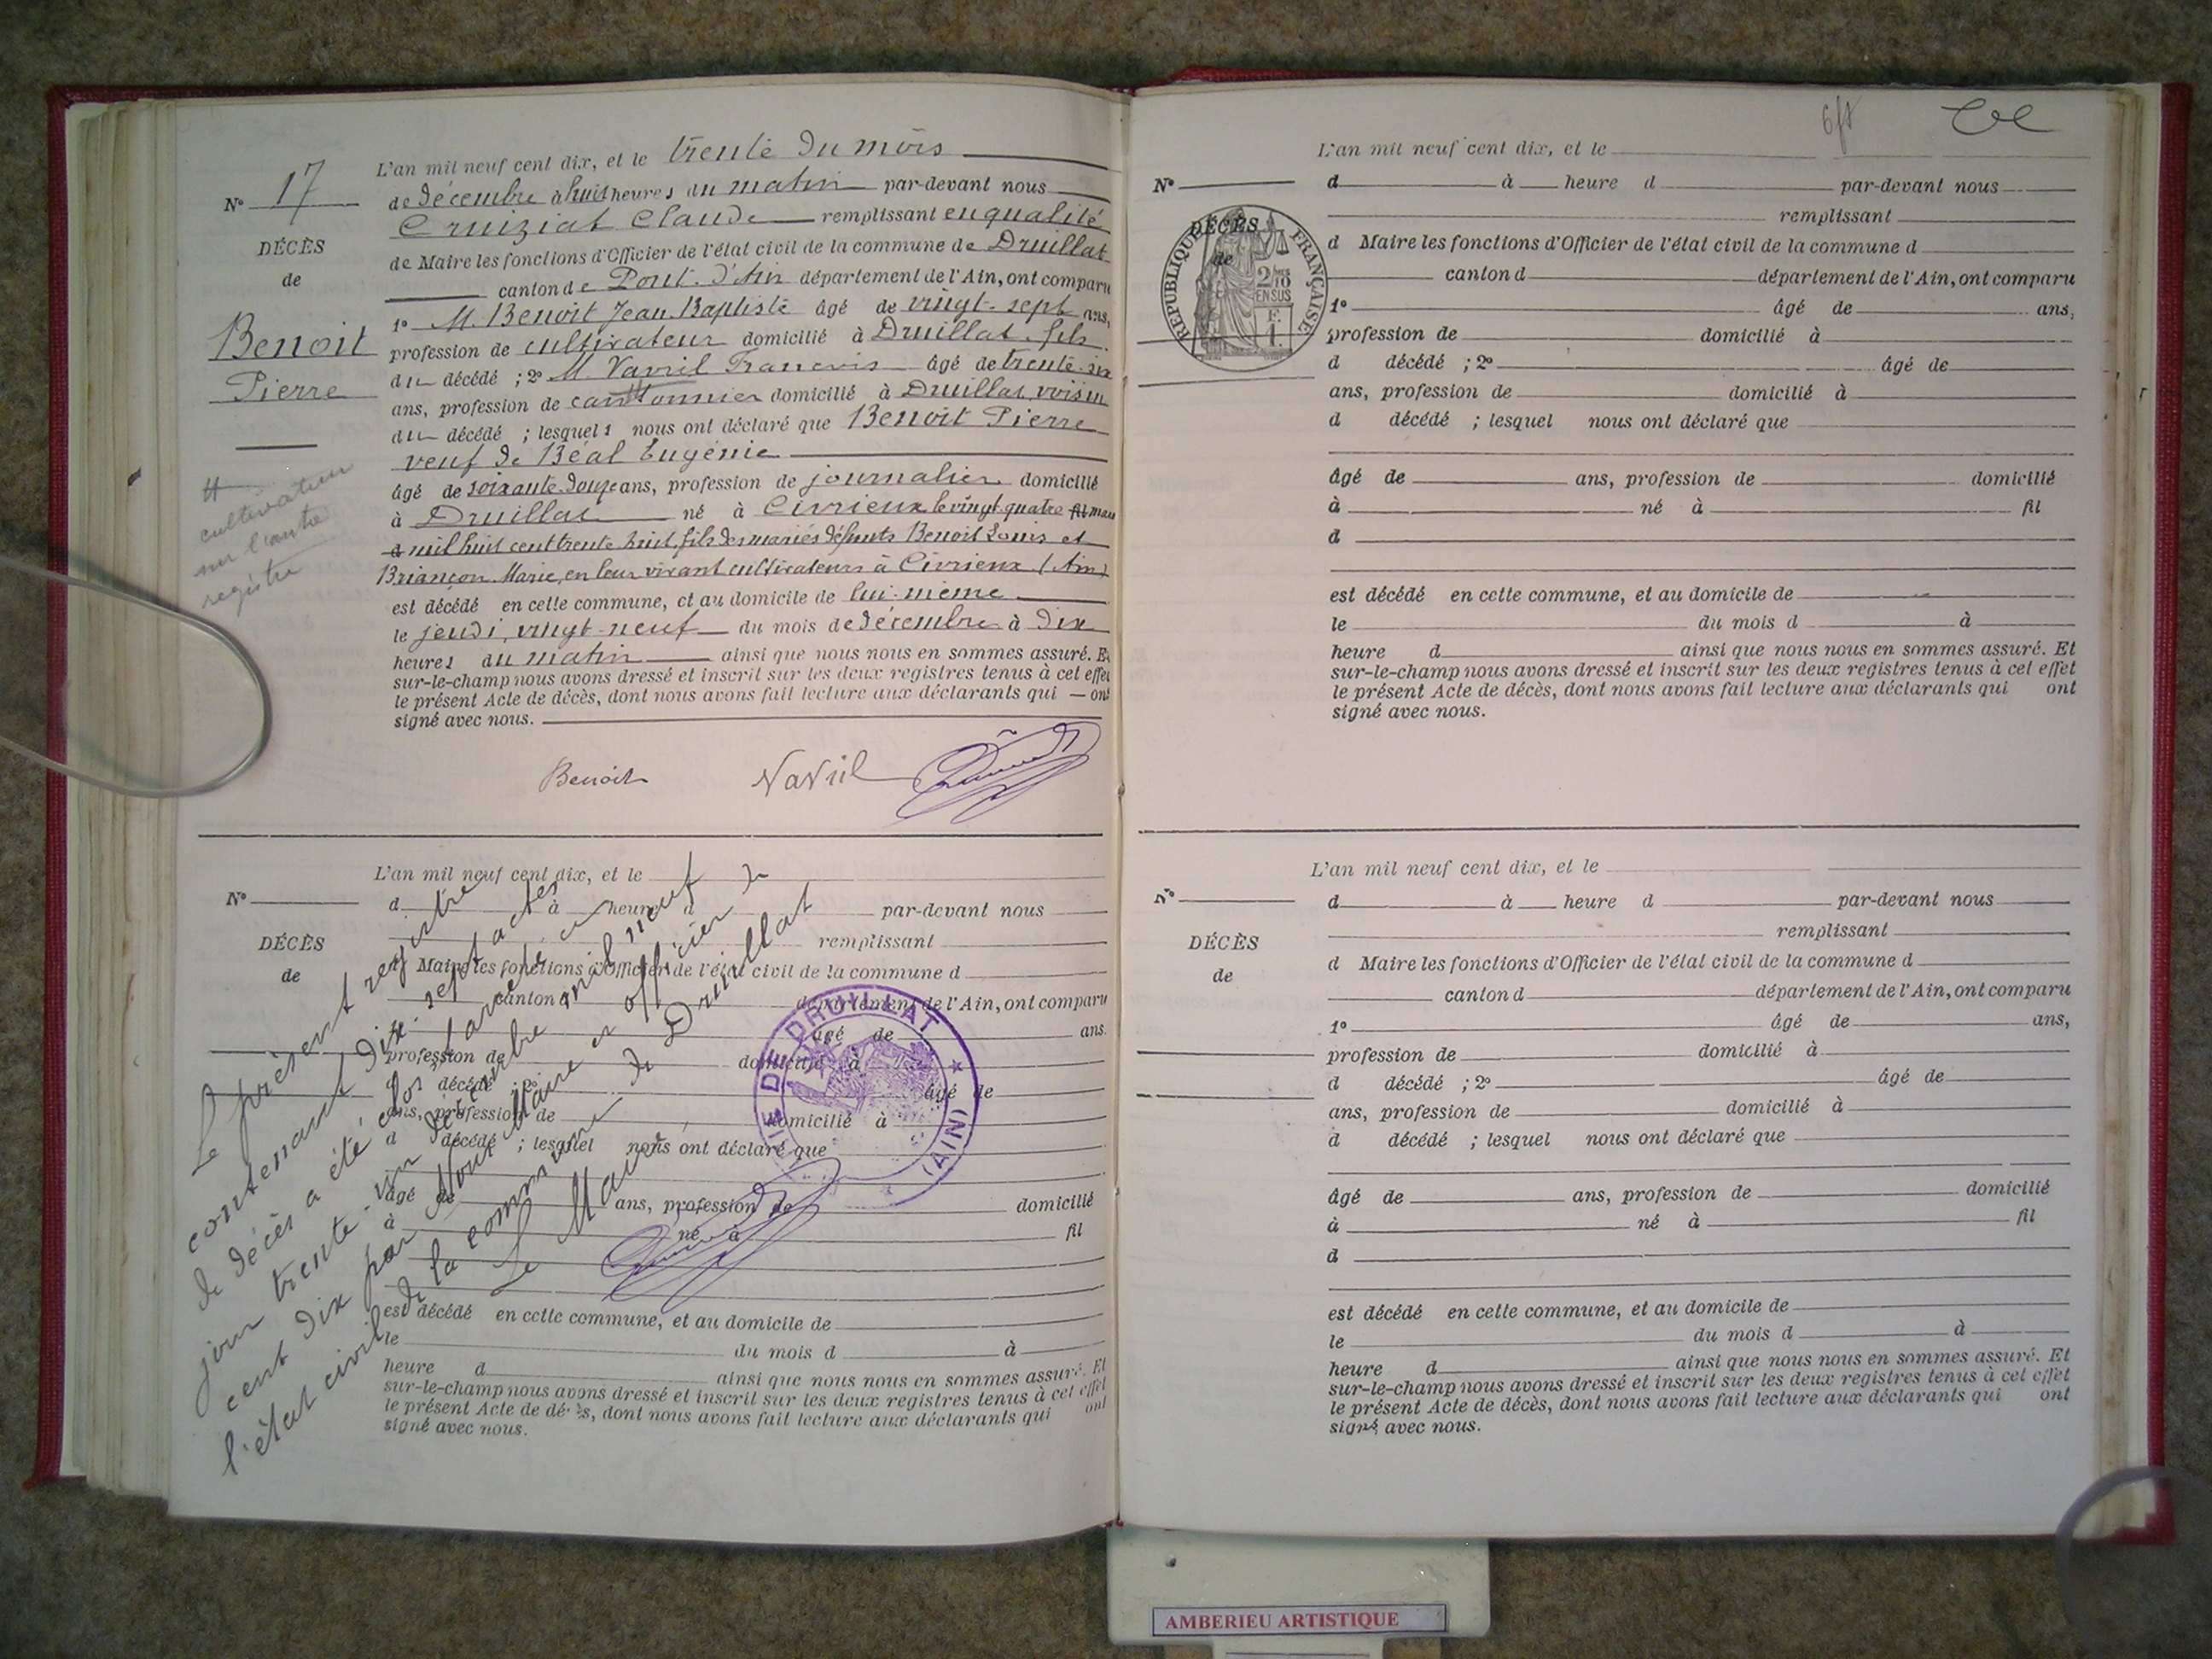 L'an mil neuf cent dix, et le trente du mois
de décembre à huit heures du matin par-devant nous
Cruiziat Claude remplissant en qualité
de Maire les fonctions d'Officier de l'état civil de la commune de Druillat
canton de Pont-d'Ain département de l'Ain, ont comparu
1º M. Benoit Jean Baptiste âgé de vingt-sept ans,
profession de cultivateur domicilié à Druillat, fils
du décédé ; 2º M. Vavril François âgé de trente-six
ans, profession de cantonnier domicilié à Druillat, voisin
du décédé ; lesquels nous ont déclaré que Benoit Pierre
veuf de Béal Eugénie
âgé de soixante-douze ans, profession de journalier domicilié
à Druillat né à Civrieux le vingt quatre fil mars
d mil huit cent trente huit, fils des mariés défunts Benoit Louis et
Briançon Marie, en leur vivant cultivateurs à Civrieux (Ain)
est décédé en cette commune, et au domicile de lui-même
le jeudi, vingt-neuf du mois de décembre à dix
heures du matin ainsi que nous nous en sommes assuré. Et
sur-le-champ nous avons dressé et inscrit sur les deux registres tenus à cet effet
le présent Acte de décès, dont nous avons fait lecture aux déclarants qui ont
signé avec nous.
Benoit VaVril
Nº 17
DÉCÈS
de
Benoit
Pierre
cultivateur
sur l'autre
registre
L'an mil neuf cent dix, et le
d à heure d par-devant nous
remplissant
d Maire les fonctions d'Officier de l'état civil de la commune d
canton d département de l'Ain, ont comparu
âgé de ans.
profession de domicilié à
d décédé ; 2º âgé de
ans, profession de domicilié à
d décédé ; lesquel nous ont déclaré que
âgé de ans, profession de domicilié
à né à fil
est décédé en cette commune, et au domicile de
le du mois d à
heure d ainsi que nous nous en sommes assuré. Et
sur-le-champ nous avons dressé et inscrit sur les deux registres tenus à cet effet
le présent Acte de décès, dont nous avons fait lecture aux déclarants qui ont
signé avec nous.
Nº
DÉCÈS
de
Le présent registre
contenant dix-sept actes
de décès a été clos et arrêté ce
jour trente-un décembre mil neuf
cent dix par Nous Maire en officier de
l'état civil de la commune de Druillat
Le Maire
MAIRIE DE DRUILLAT
(AIN)
L'an mil neuf cent dix, et le
Nº d à heure d par-devant nous
remplissant
d Maire les fonctions d'Officier de l'état civil de la commune d
canton d département de l'Ain, ont comparu
1º âgé de ans,
profession de domicilié à
d décédé ; 2º âgé de
ans, profession de domicilié à
d décédé ; lesquel nous ont déclaré que
âgé de ans, profession de domicilié
à né à fil
d
est décédé en cette commune, et au domicile de
le du mois d à
heure d ainsi que nous nous en sommes assuré. Et
sur-le-champ nous avons dressé et inscrit sur les deux registres tenus à cet effet
le présent Acte de décès, dont nous avons fait lecture aux déclarants qui ont
signé avec nous.
DÉCÈS
de
RÉPUBLIQUE FRANÇAISE
2/10
EN SUS
F.
1.
L'an mil neuf cent dix, et le
Nº d à heure d par-devant nous
remplissant
DÉCÈS
de
d Maire les fonctions d'Officier de l'état civil de la commune d
canton d département de l'Ain, ont comparu
1º âgé de ans,
profession de domicilié à
d décédé ; 2º âgé de
ans, profession de domicilié à
d décédé ; lesquel nous ont déclaré que
âgé de ans, profession de domicilié
à né à fil
d
est décédé en cette commune, et au domicile de
le du mois d à
heure d ainsi que nous nous en sommes assuré. Et
sur-le-champ nous avons dressé et inscrit sur les deux registres tenus à cet effet
le présent Acte de décès, dont nous avons fait lecture aux déclarants qui ont
signé avec nous.
AMBERIEU ARTISTIQUE